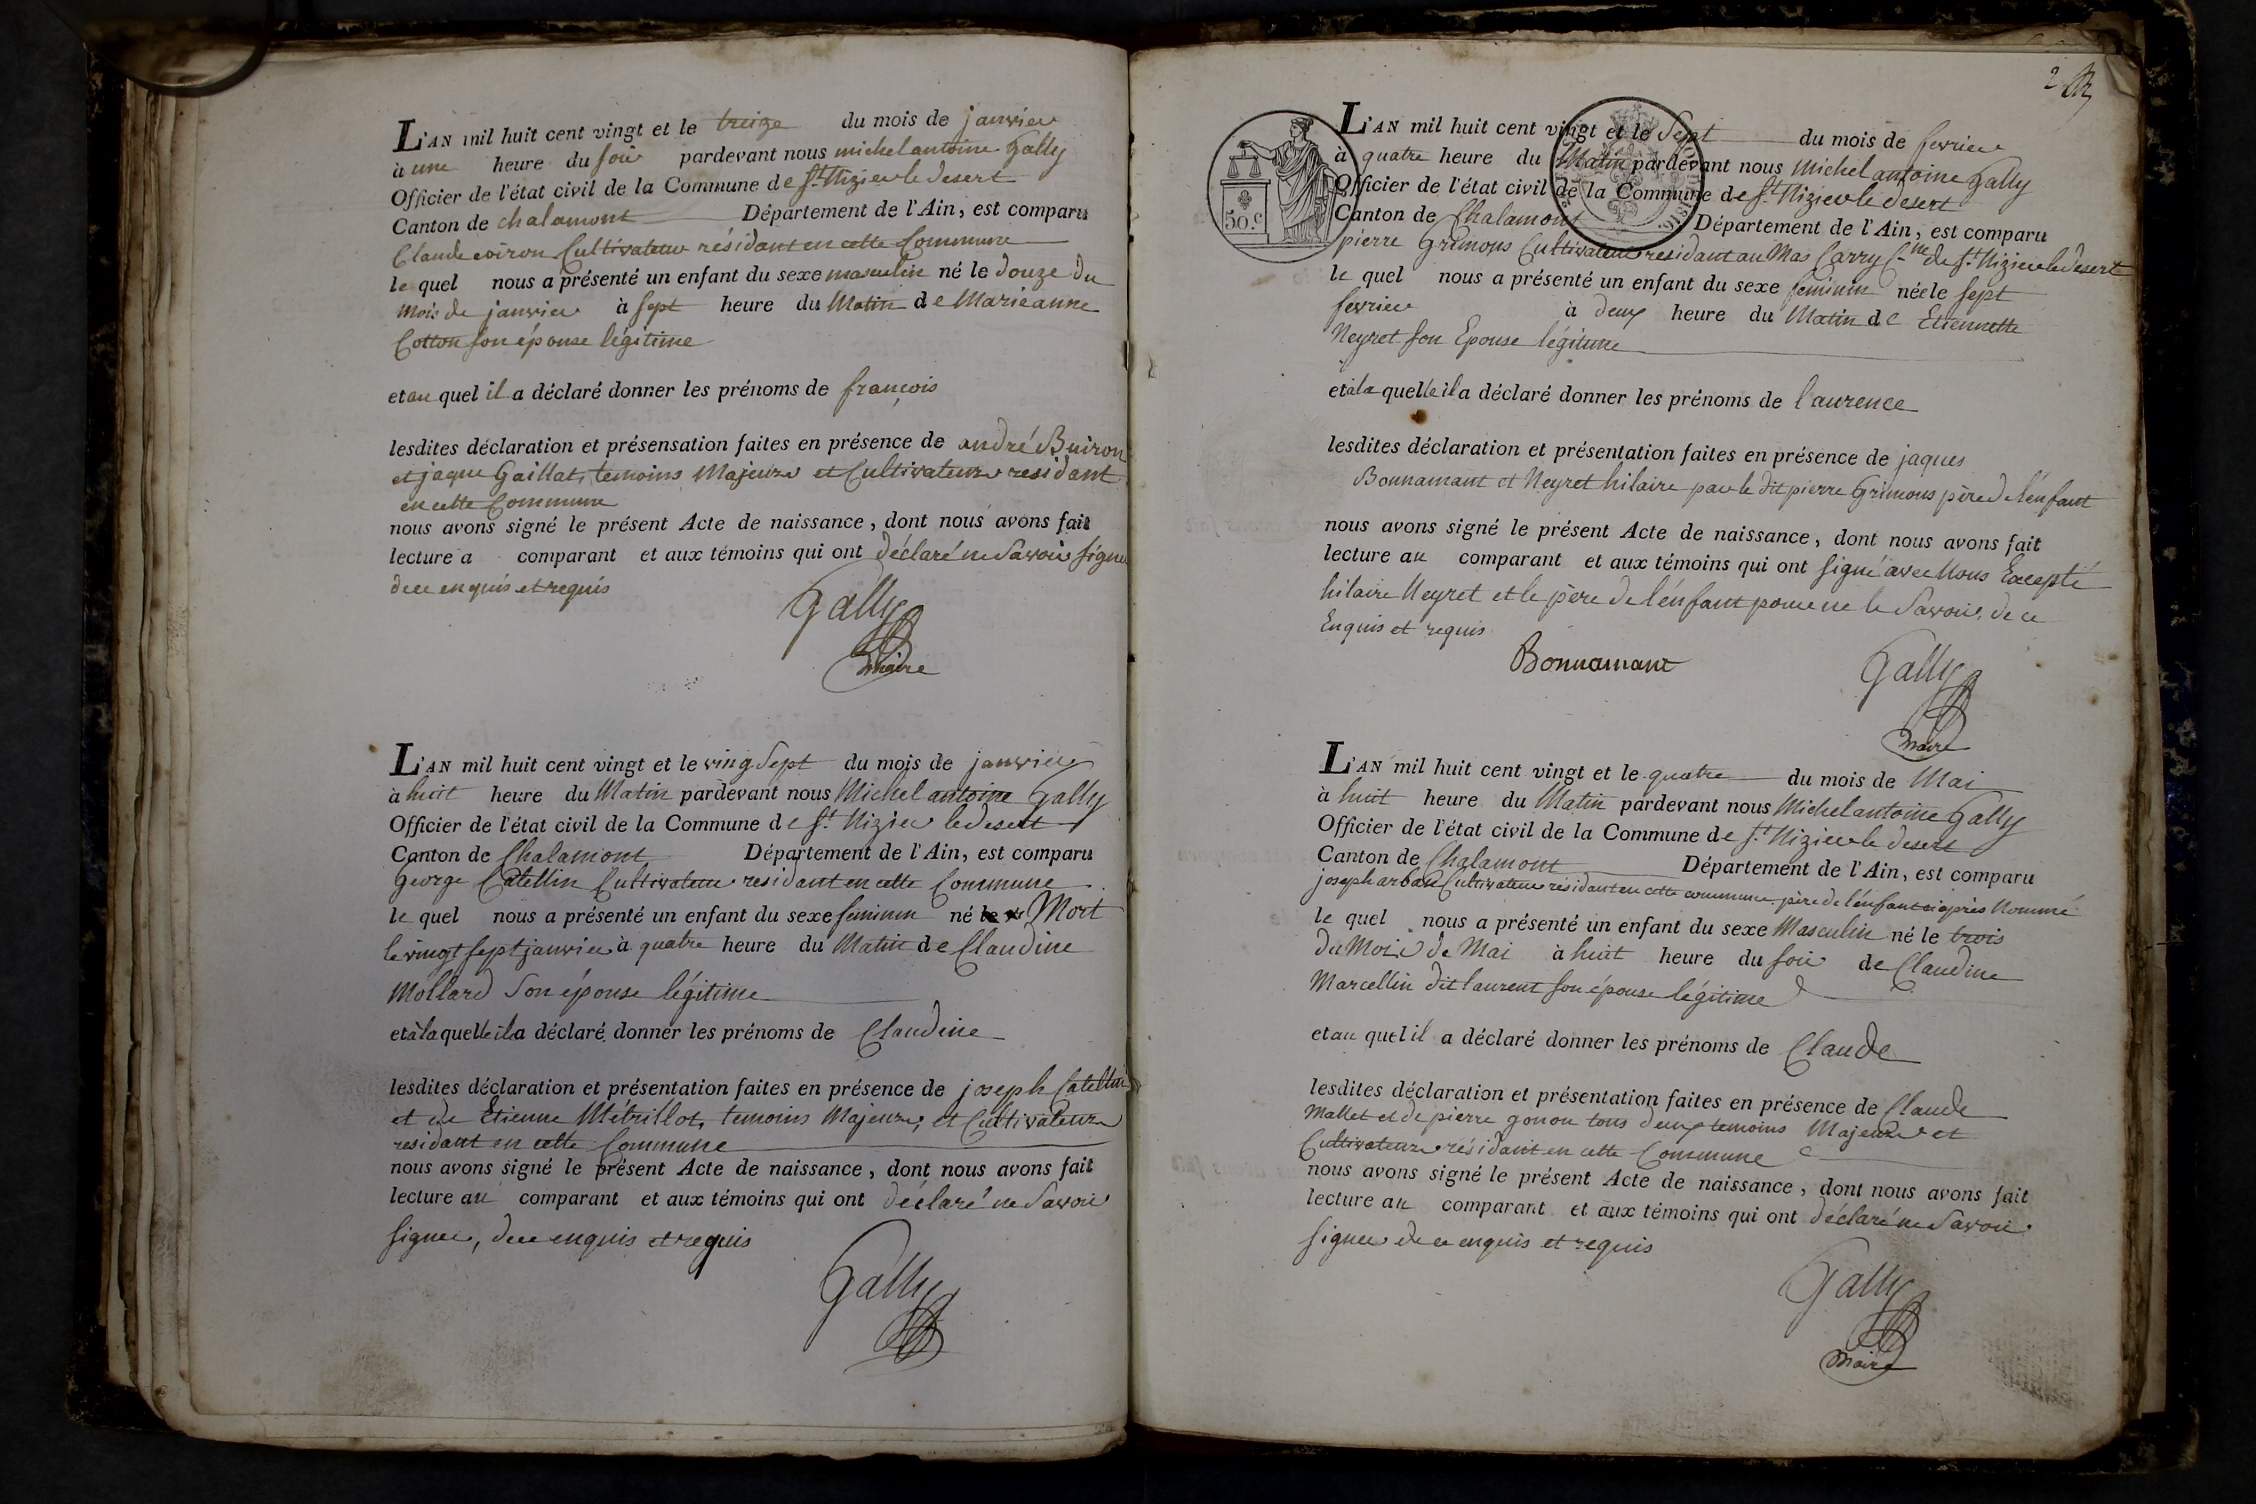 L'AN mil huit cent vingt et le treize du mois de janvier
à une heure du soir pardevant nous michel antoine Gally
Officier de l'état civil de la Commune de St. Nizier le desert
Canton de chalamont Département de l'Ain, est comparu
Claude coiron Cultivateur résidant en cette Commune
le quel nous a présenté un enfant du sexe masculin né le douze du
mois de janvier à sept heure du Matin de Marieanne
Cotton son épouse légitime
et au quel il a déclaré donner les prénoms de françois
lesdites déclaration et présensation faites en présence de andré Buiron
et jaque Gaillat, temoins Majeurs et Cultivateurs residant
en cette Commune
nous avons signé le présent Acte de naissance, dont nous avons fait
lecture a comparant et aux témoins qui ont déclaré ne Savoir signer
de ce enquis et requis
Gally
maire
L'AN mil huit cent vingt et le ving Sept du mois de janvier
à huit heure du Matin pardevant nous Michel antoine Gally
Officier de l'état civil de la Commune de St. Nizier le desert
Canton de Chalamont Département de l'Ain, est comparu
George Catellin Cultivateur residant en cette Commune
le quel nous a présenté un enfant du sexe feminin né Mort
le vingt sept janvier à quatre heure du Matin de Claudine
Mollard Son épouse légitime
et à la quelle il a déclaré donner les prénoms de Claudine
lesdites déclaration et présentation faites en présence de joseph Catellin
et de Etienne Métrillot, temoins Majeurs, et Cultivateurs
residant en cette Commune
nous avons signé le présent Acte de naissance, dont nous avons fait
lecture au comparant et aux témoins qui ont déclaré ne Savoir
signer, de ce enquis et requis
Gally
2
50.c
L'AN mil huit cent vingt et le Sept du mois de fevrier
à quatre heure du Matin pardevant nous Michel antoine Gally
Officier de l'état civil de la Commune de St. Nizier le desert
Canton de Chalamont Département de l'Ain, est comparu
pierre Grimons Cultivateur residant au Mas Carry C.ne de St. Nizier le desert
le quel nous a présenté un enfant du sexe feminin née le sept
fevrier à deux heure du Matin de Etiennette
Neyret son Epouse légitime
et à la quelle il a déclaré donner les prénoms de l'aurence
lesdites déclaration et présentation faites en présence de jaques
Bonnamant et Neyret hilaire par le dit pierre Grimons père de l'enfant
nous avons signé le présent Acte de naissance, dont nous avons fait
lecture au comparant et aux témoins qui ont signé avec Nous Excepté
hilaire Neyret et le père de l'enfant pour ne le Savoir, de ce
Enquis et requis
Bonnamant Gally
maire
L'AN mil huit cent vingt et le quatre du mois de Mai
à huit heure du Matin pardevant nous Michel antoine Gally
Officier de l'état civil de la Commune de St. Nizier le desert
Canton de Chalamont Département de l'Ain, est comparu
joseph arban Cultivateur résidant en cette commune, père de l'enfant ci après Nommé
le quel nous a présenté un enfant du sexe Masculin né le trois
du Mois de Mai à huit heure du soir de Claudine
Marcellin dit laurent son épouse légitime
et au quel il a déclaré donner les prénoms de Claude
lesdites déclaration et présentation faites en présence de Claude
Mallet et de pierre gonon tous deux temoins Majeurs et
Cultivateurs résidant en cette Commune
nous avons signé le présent Acte de naissance, dont nous avons fait
lecture au comparant et aux témoins qui ont déclaré ne Savoir
signer de ce enquis et requis
Gally
Maire